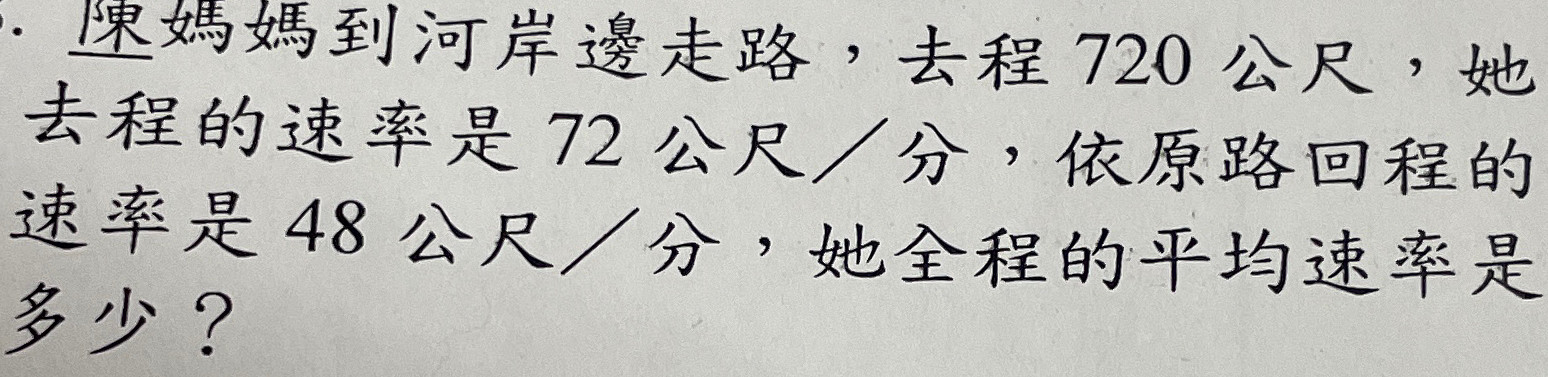 . 陳媽媽到河岸邊走路，去程 720 公尺，她
去程的速率是 72 公尺／分，依原路回程的
速率是 48 公尺／分，她全程的平均速率是
多少？